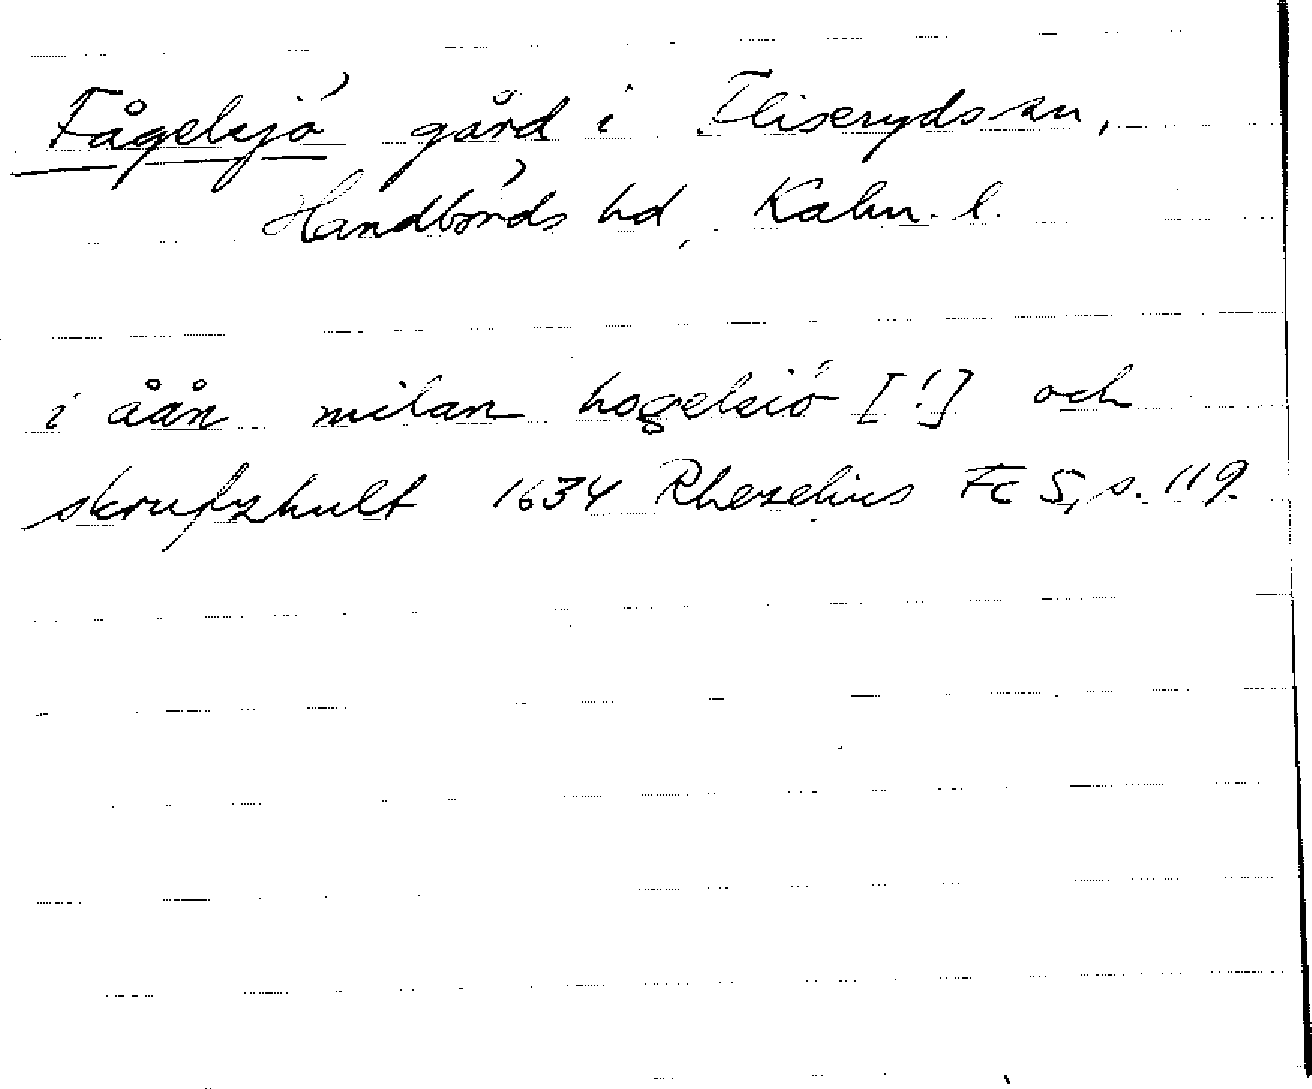 Fågelsjö gård i Fliseryds sn,
Handbörds hd, Kalm. l.
i åån milan hogelsiö [!] och
skrufzhult 1634 Rhezelius Fc 5, s. 119.